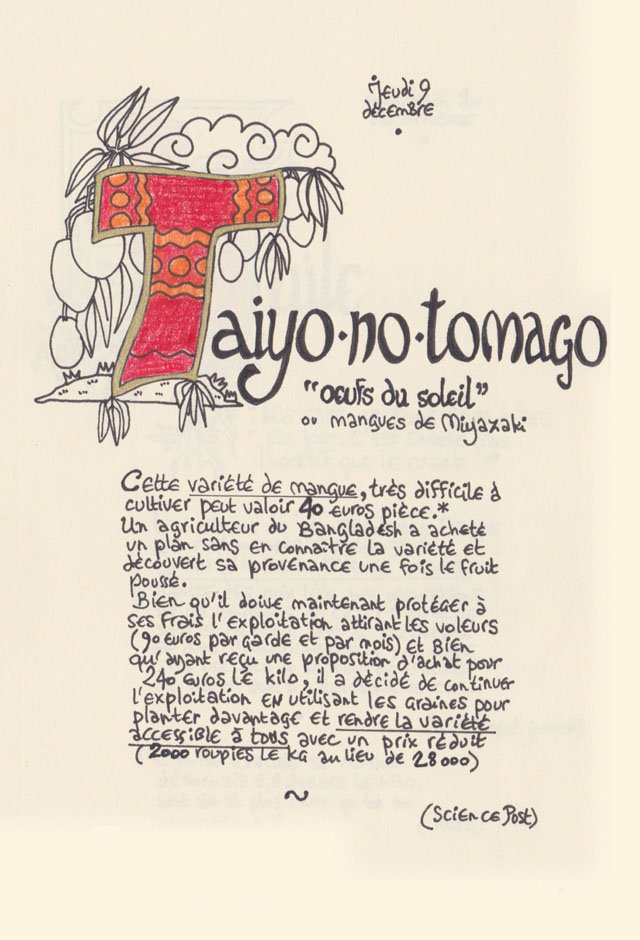 Jeudi 9
décembre
Taiyo·no·tomago
"oeufs du soleil"
ou mangues de Miyazaki
Cette variété de mangue, très difficile à
cultiver peut valoir 40 euros pièce.*
Un agriculteur du Bangladesh a acheté
un plan sans en connaître la variété et
découvert sa provenance une fois le fruit
poussé.
Bien qu'il doive maintenant protéger à
ses frais l'exploitation attirant les voleurs
(90 euros par garde et par mois) et Bien
qu'ayant reçu une proposition d'achat pour
240 euros le kilo, il a décidé de continuer
l'exploitation en utilisant les graines pour
planter davantage et rendre la variété
accessible à tous avec un prix réduit
(2000 roupies le kg au lieu de 28000)
~
(Science Post)